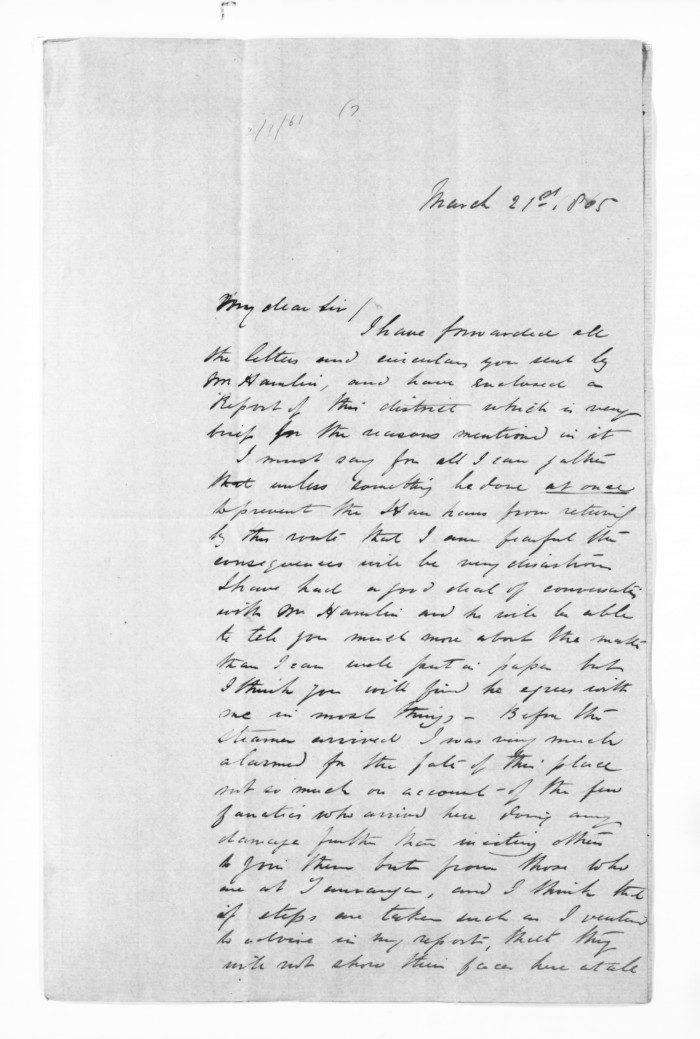 March 21st, 1865
My dear Sir/
I have forwarded all
the letters and circulars you sent by
Mr Hamlin, and have enclosed a
Report of this district which is very
brief for the reasons mentioned in it
I must say for all I can gather
that unless something be done at once
to prevent the Hau haus from returning
by this route that I am fearful the
consequences will be very disastrous
I have had a good deal of conversation
with Mr Hamlin and he will be able
to tell you much more about the matter
than I can well put on paper but
I think you will find he agrees with
me in most things - Before the
steamer arrived I was very much
alarmed for the fate of this place
not so much on account of the few
fanatics who arrived here doing any
damage further than inciting others
to join them but from those who
are at Tauranga, and I think that
if steps are taken such as I ventured
to advise in my report, that they
will not show their faces here at all